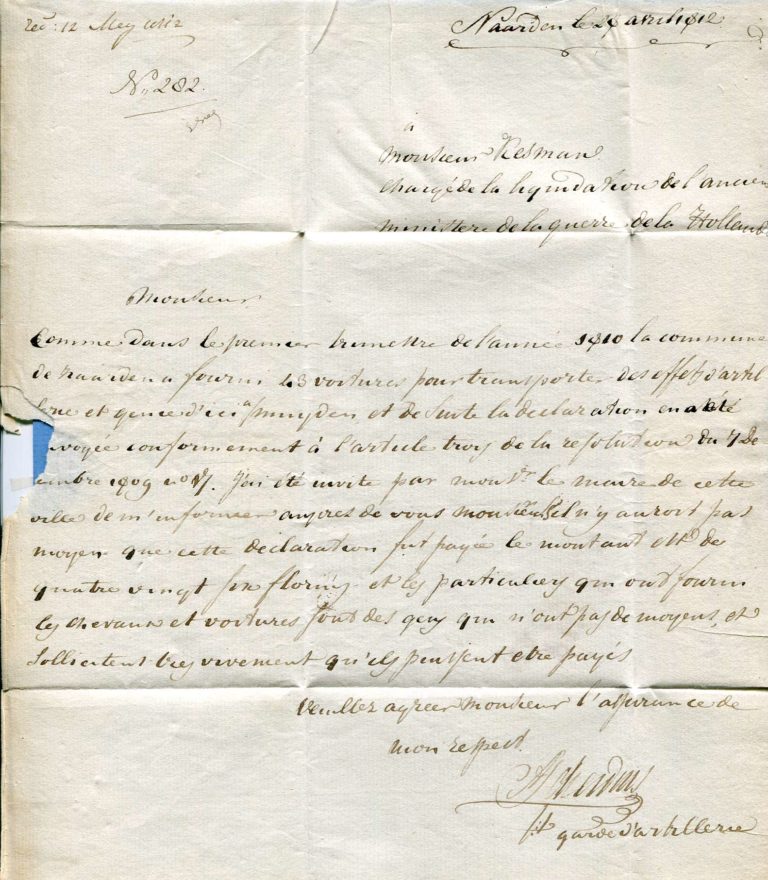 Rec: 12 Mey 1812
Naarden le 28 avril 1812
No 282.
à
Monsieur Kesman
chargé de la liquidation de l'ancien
ministere de la guerre de la Hollande
Monsieur
Comme dans le premier trimestre de l'année 1810 la commune
de Naarden a fourni 43 voitures pour transporter des effets d'artil
lerie et genie d'ici a Muyden et de suite la declaration en a eté
nvoyée conformement à l'article trois de la resolution du 7 De
embre 1809 no J'ai été invité par monsr le maire de cette
ville de m'informer aupres de vous monsieur s'il n'y auroit pas
moyen que cette declaration fut payée le montant est de
quatre vingt six florins et les particuliers qui ont fourni
les chevaux et voitures sont des gens qui n'ont pas de moyens et
sollicitent tres vivement qu'ils puissent etre payés
Veuillez agreer monsieur l'assurance de
mon respect.
garde d'artillerie